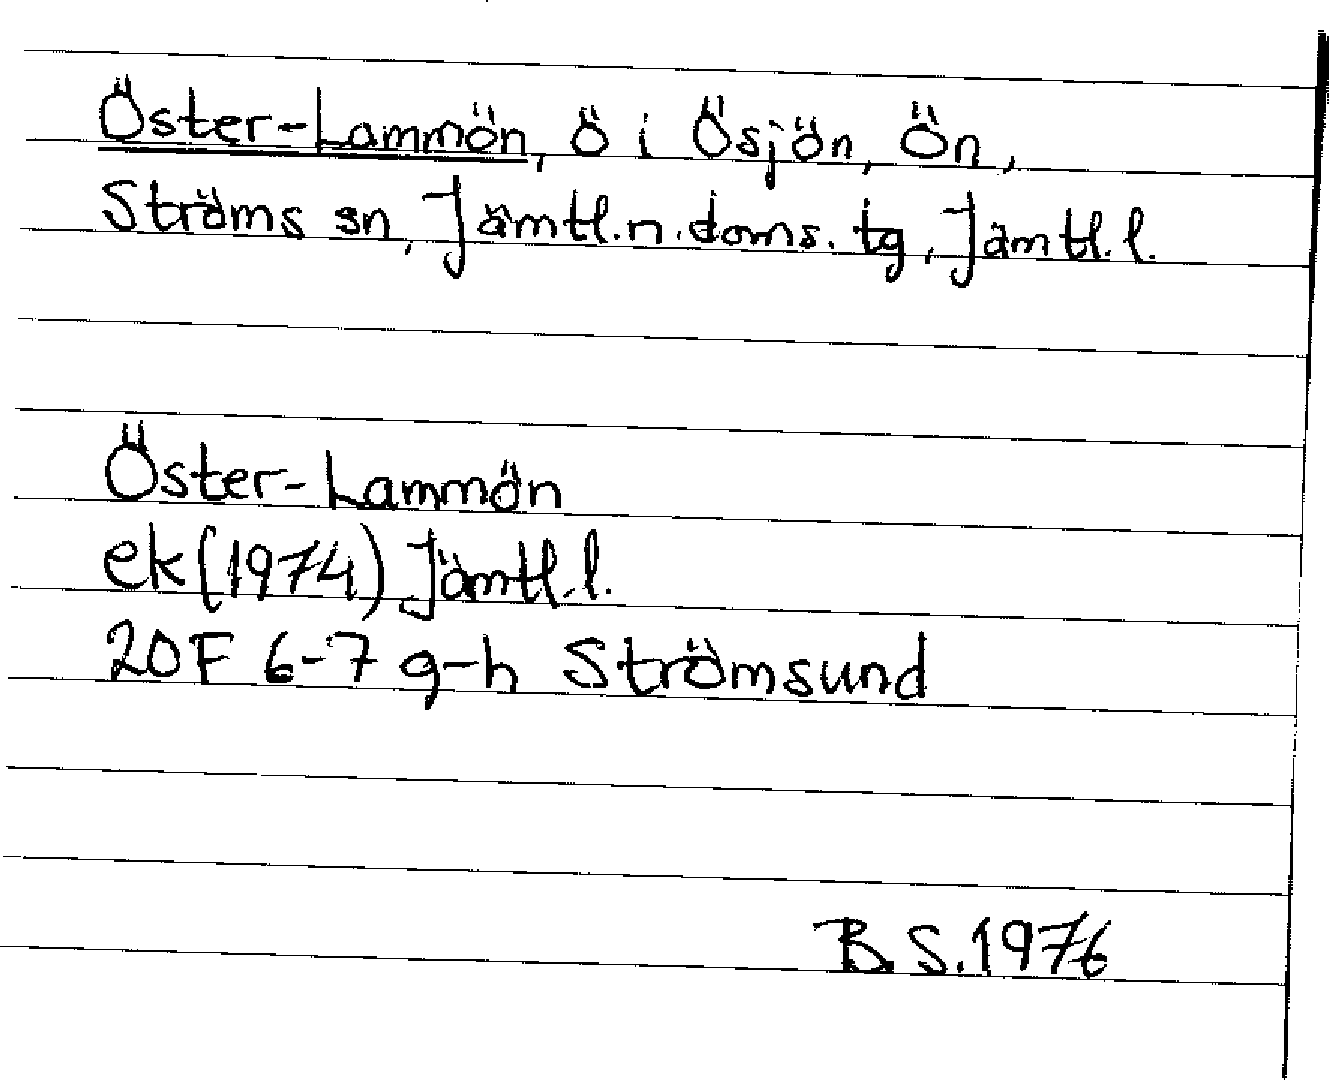 Öster-Lammön, Ö i Ösjön, Ön,
Ströms sn, Jämtl.n.doms.tg, Jämtl.l.
Öster-Lammön
ek (1974) Jämtl.l.
20F 6-7 g-h Strömsund
B.S.1976